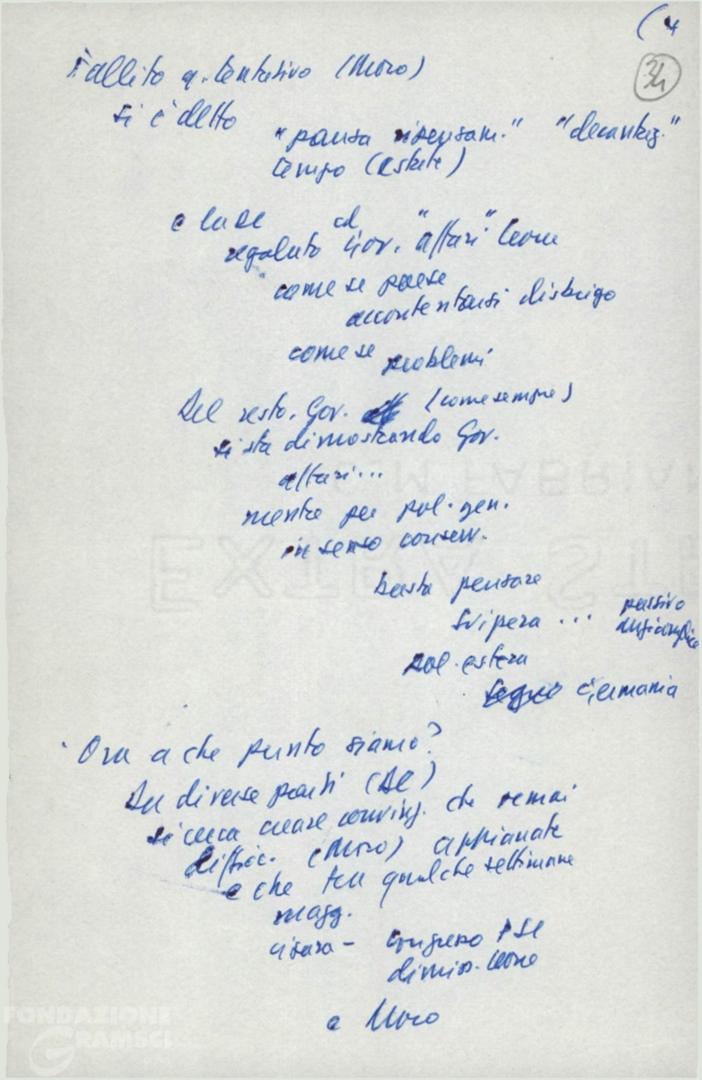 (4
34
Fallito q. tentativo (Moro)
si è detto
"pausa ripensam." "decantaz."
tempo (estate)
e la DC ci
regalato Gov. "affari" Leone
come se paese
accontentarsi disbrigo
come se problemi
Del resto, Gov. (come sempre)
si sta dimostrando Gov.
affari...
mentre per pol. gen.
in senso conserv.
basta pensare
Svipera ... passivo
pol. estera
Germania
Ora a che punto siamo?
Da diverse parti (DC)
si cerca creare conving. che ormai
diffic. (Moro) appianate
e che tra qualche settimana
magg.
ci sarà - Congresso PSI
dimiss. Leone
e Moro
EXTRA ST
C.M. FABRIAN
FONDAZIONE
GRAMSCI